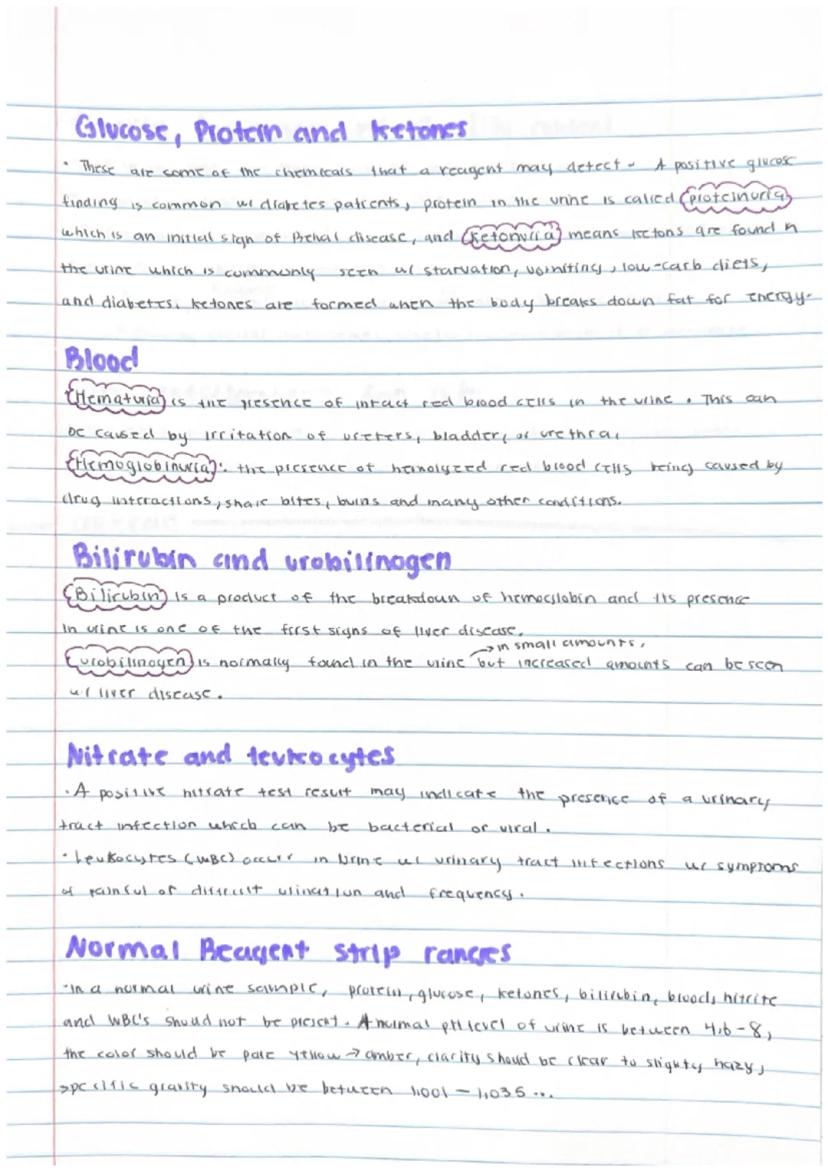 Glucose, Protein and Ketones
• These are some of the chemicals that a reagent may detect. A positive glucose
finding is common w/ diabetes patients, protein in the urine is called proteinuria
which is an initial sign of Renal disease, and Ketonuria means ketons are found in
the urine which is commonly seen w/ starvation, vomiting, low-carb diets,
and diabetes. Ketones are formed when the body breaks down fat for energy.
Blood
Hematuria is the presence of intact red blood cells in the urine. This can
be caused by irritation of ureters, bladder, or urethra.
Hemoglobinuria: the presence of hemolyzed red blood cells being caused by
drug interactions, snake bites, burns and many other conditions.
Bilirubin and urobilinogen
Bilirubin is a product of the breakdown of hemoglobin and its presence
in urine is one of the first signs of liver disease.
→ in small amounts,
urobilinogen is normally found in the urine but increased amounts can be seen
w/ liver disease.
Nitrate and leukocytes
• A positive nitrate test result may indicate the presence of a urinary
tract infection which can be bacterial or viral.
• Leukocytes (WBC) occur in Urine w/ urinary tract infections w/ symptoms
of painful or difficult urination and frequency.
Normal Reagent strip ranges
• In a normal urine sample, protein, glucose, ketones, bilirubin, blood, nitrite
and WBC's should not be present. A normal pH level of urine is between 4.6-8,
the color should be pale yellow → amber, clarity should be clear to slighty hazy,
specific gravity should be between 1.001 - 1.035...